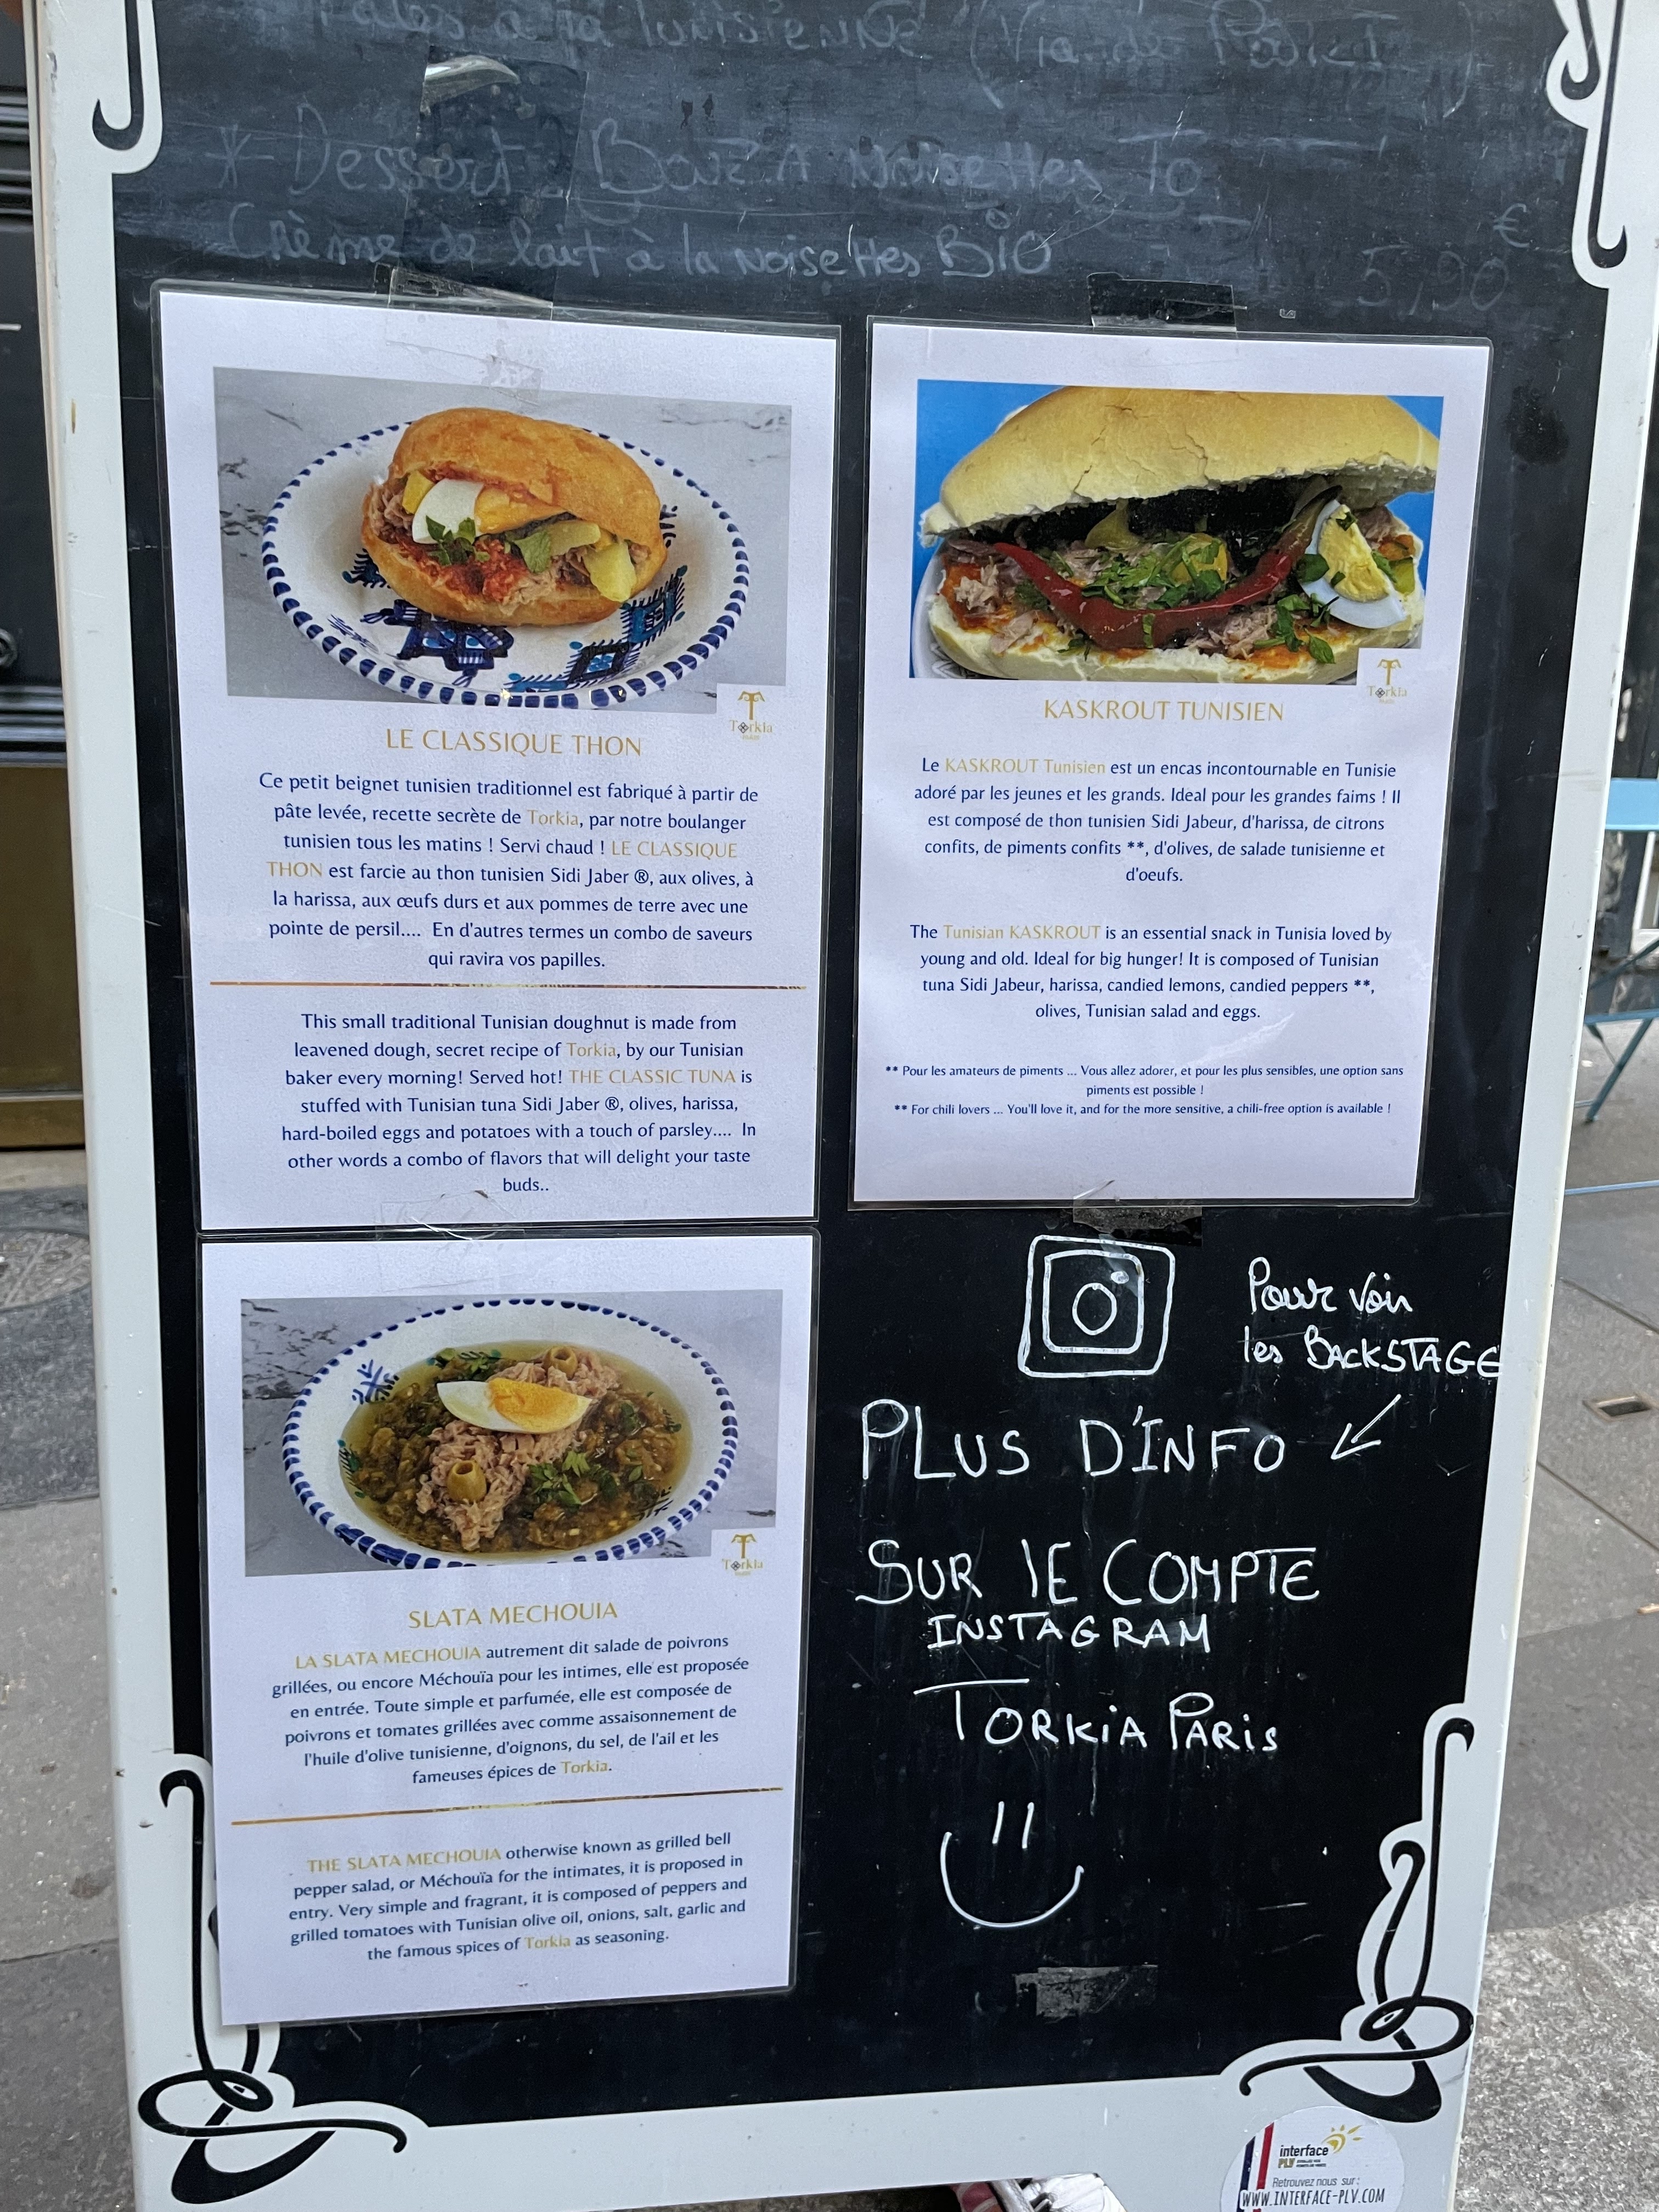 à la Tunisienne
* Dessert : BouzA Noisettes To
Crème de lait à la Noisettes BIO
€
5,90
Torkia
LE CLASSIQUE THON
Ce petit beignet tunisien traditionnel est fabriqué à partir de
pâte levée, recette secrète de Torkia, par notre boulanger
tunisien tous les matins ! Servi chaud ! LE CLASSIQUE
THON est farcie au thon tunisien Sidi Jaber ®, aux olives, à
la harissa, aux œufs durs et aux pommes de terre avec une
pointe de persil.... En d'autres termes un combo de saveurs
qui ravira vos papilles.
This small traditional Tunisian doughnut is made from
leavened dough, secret recipe of Torkia, by our Tunisian
baker every morning! Served hot! THE CLASSIC TUNA is
stuffed with Tunisian tuna Sidi Jaber ®, olives, harissa,
hard-boiled eggs and potatoes with a touch of parsley.... In
other words a combo of flavors that will delight your taste
buds..
Torkia
KASKROUT TUNISIEN
Le KASKROUT Tunisien est un encas incontournable en Tunisie
adoré par les jeunes et les grands. Ideal pour les grandes faims ! Il
est composé de thon tunisien Sidi Jabeur, d'harissa, de citrons
confits, de piments confits **, d'olives, de salade tunisienne et
d'oeufs.
The Tunisian KASKROUT is an essential snack in Tunisia loved by
young and old. Ideal for big hunger! It is composed of Tunisian
tuna Sidi Jabeur, harissa, candied lemons, candied peppers **,
olives, Tunisian salad and eggs.
** Pour les amateurs de piments ... Vous allez adorer, et pour les plus sensibles, une option sans
piments est possible !
** For chili lovers ... You'll love it, and for the more sensitive, a chili-free option is available !
Torkia
SLATA MECHOUIA
LA SLATA MECHOUIA autrement dit salade de poivrons
grillées, ou encore Méchouïa pour les intimes, elle est proposée
en entrée. Toute simple et parfumée, elle est composée de
poivrons et tomates grillées avec comme assaisonnement de
l'huile d'olive tunisienne, d'oignons, du sel, de l'ail et les
fameuses épices de Torkia.
THE SLATA MECHOUIA otherwise known as grilled bell
pepper salad, or Méchouïa for the intimates, it is proposed in
entry. Very simple and fragrant, it is composed of peppers and
grilled tomatoes with Tunisian olive oil, onions, salt, garlic and
the famous spices of Torkia as seasoning.
Pour voir
les BACKSTAGE
PLUS D'INFO
SUR lE COMPTE
INSTAGRAM
TORKiA PARiS
interface
PLV
Retrouvez nous sur :
WWW.INTERFACE-PLV.COM